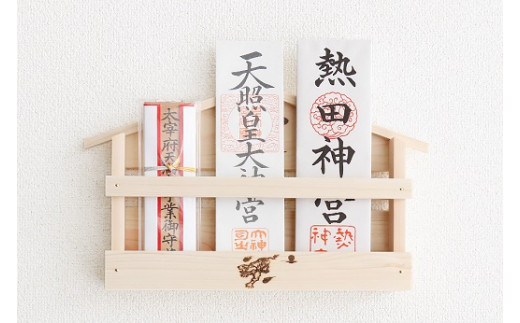 熱田神宮
天照皇大神宮
太宰府天
業御守